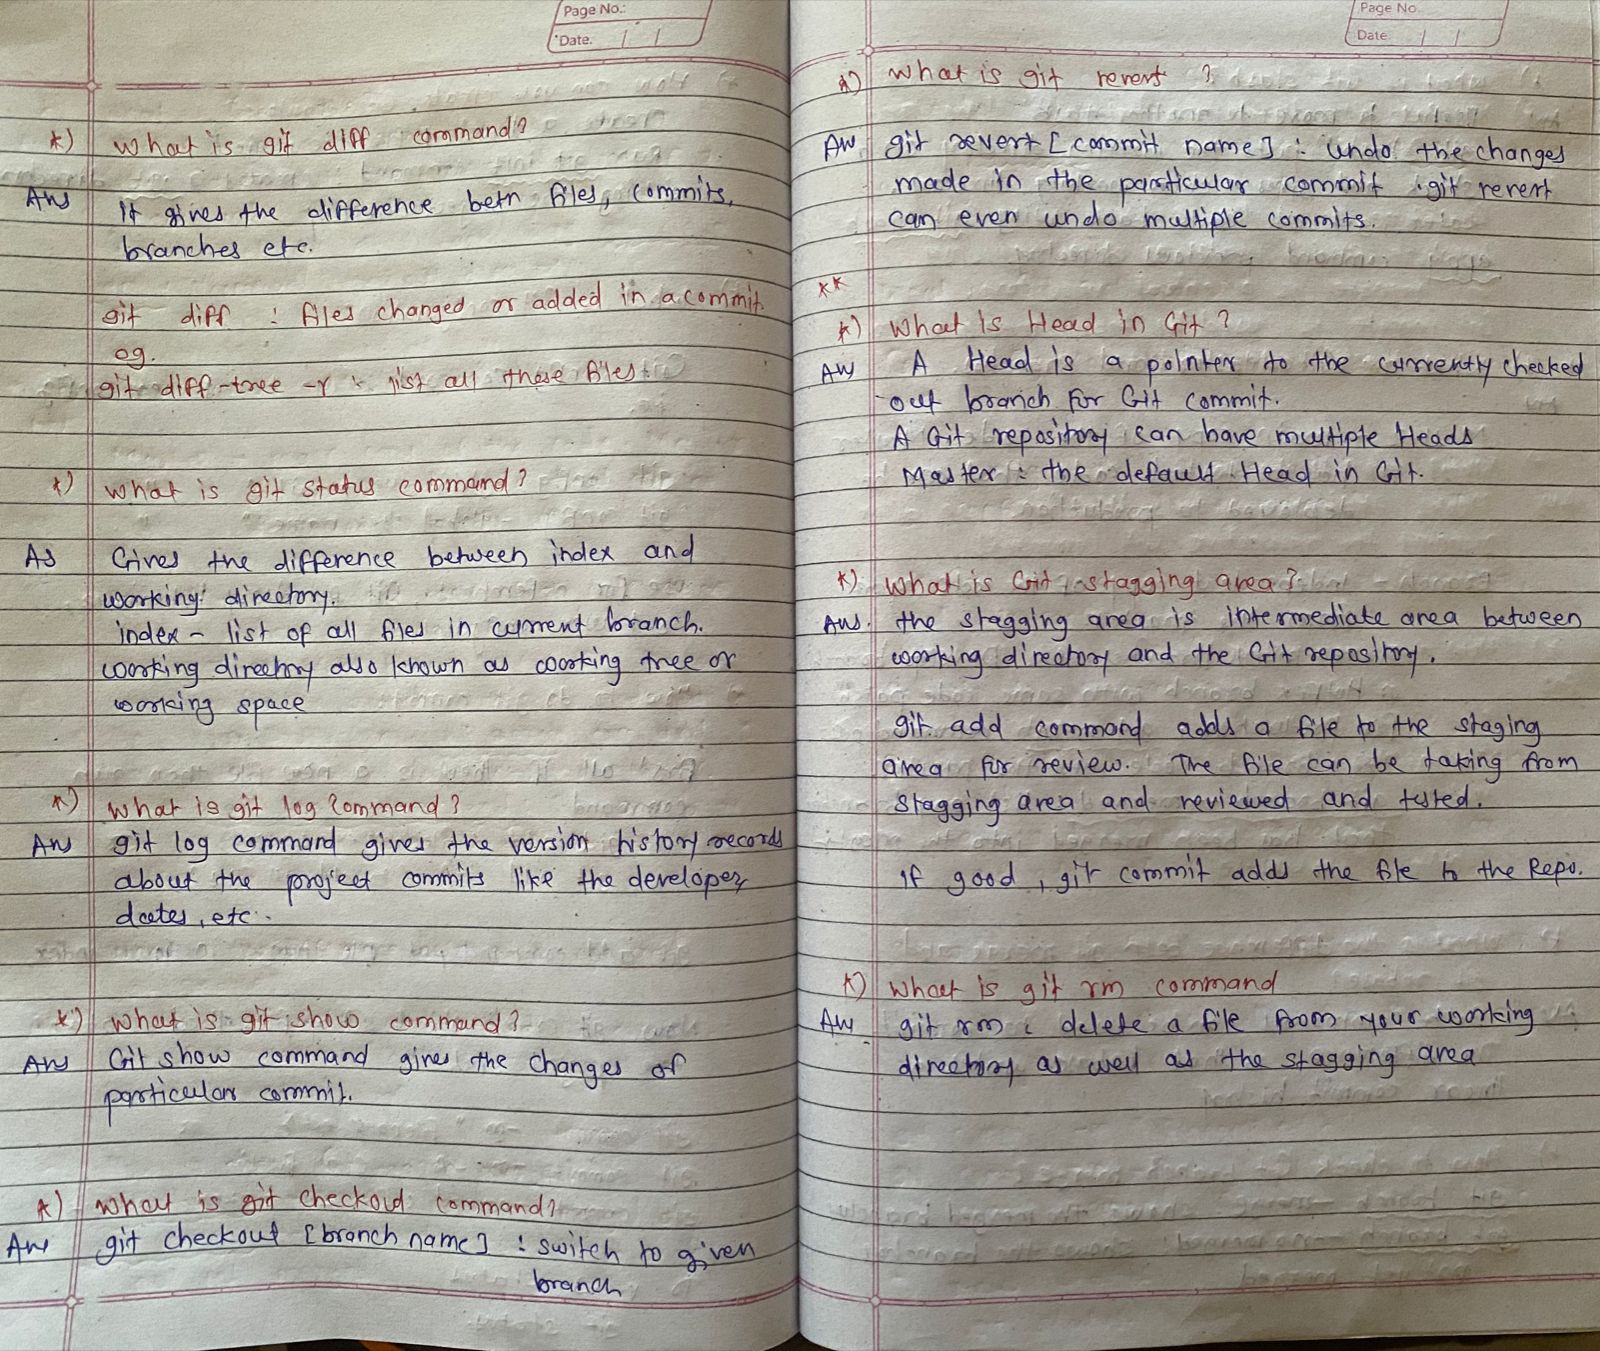 Page No.:
Date. / /
*) What is git diff command?
Ans It gives the difference betn files, commits,
branches etc.
git diff : files changed or added in a commit
eg.
git diff-tree -r : list all those files.
*) What is git status command?
As Gives the difference between index and
working directory.
index - list of all files in current branch.
working directory also known as working tree or
working space
*) What is git log command?
Ans git log command gives the version history records
about the project commits like the developer,
dates, etc.
*) What is git show command?
Ans Git show command gives the changes of
particular commit.
*) What is git checkout command?
Ans git checkout [branch name] : switch to given
branch
Page No.
Date / /
*) What is git revert ?
Ans git revert [commit name] : undo the changes
made in the particular commit . git revert
can even undo multiple commits.
**
*) What is Head in Git ?
Ans A Head is a pointer to the currently checked
out branch for Git commit.
A Git repository can have multiple Heads
Master : the default Head in Git.
*) What is Git stagging area?
Ans. the stagging area is intermediate area between
working directory and the Git repository.
git add command adds a file to the staging
area for review. The file can be taking from
stagging area and reviewed and tested.
if good, git commit adds the file to the Repo.
*) What is git rm command
Ans git rm : delete a file from your working
directory as well as the stagging area